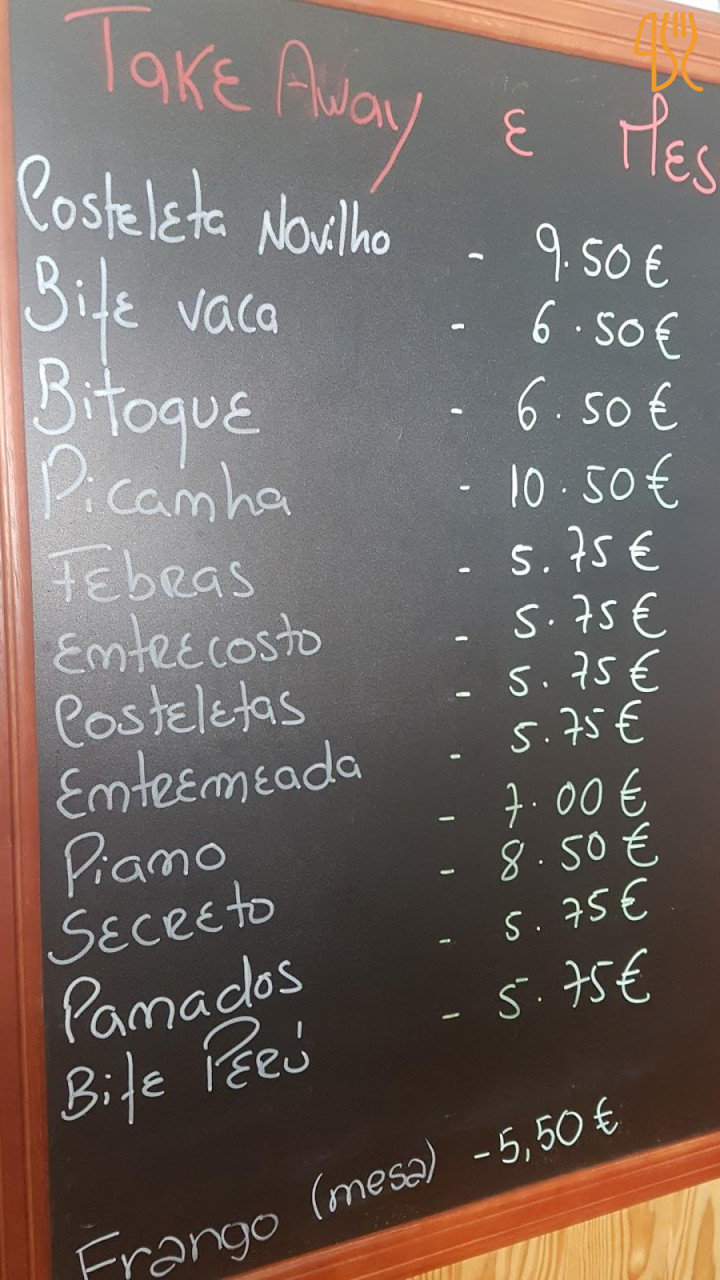 Take Away E Mes
Costeleta Novilho - 9.50€
Bife vaca - 6.50€
Bitoque - 6.50€
Picanha - 10.50€
Febras - 5.75€
Entrecosto - 5.75€
Costeletas - 5.75€
Entremeada - 5.75€
Piano - 7.00€
Secreto - 8.50€
Panados - 5.75€
Bife Perú - 5.75€
Frango (mesa) - 5,50€